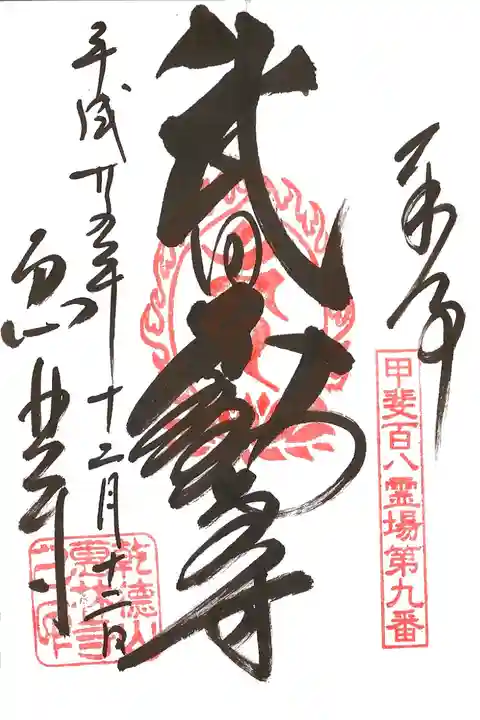 奉拝
甲斐百八霊場第九番
武田不動尊
平成廿五年十二月十二日
恵林寺
乾徳山
恵林寺